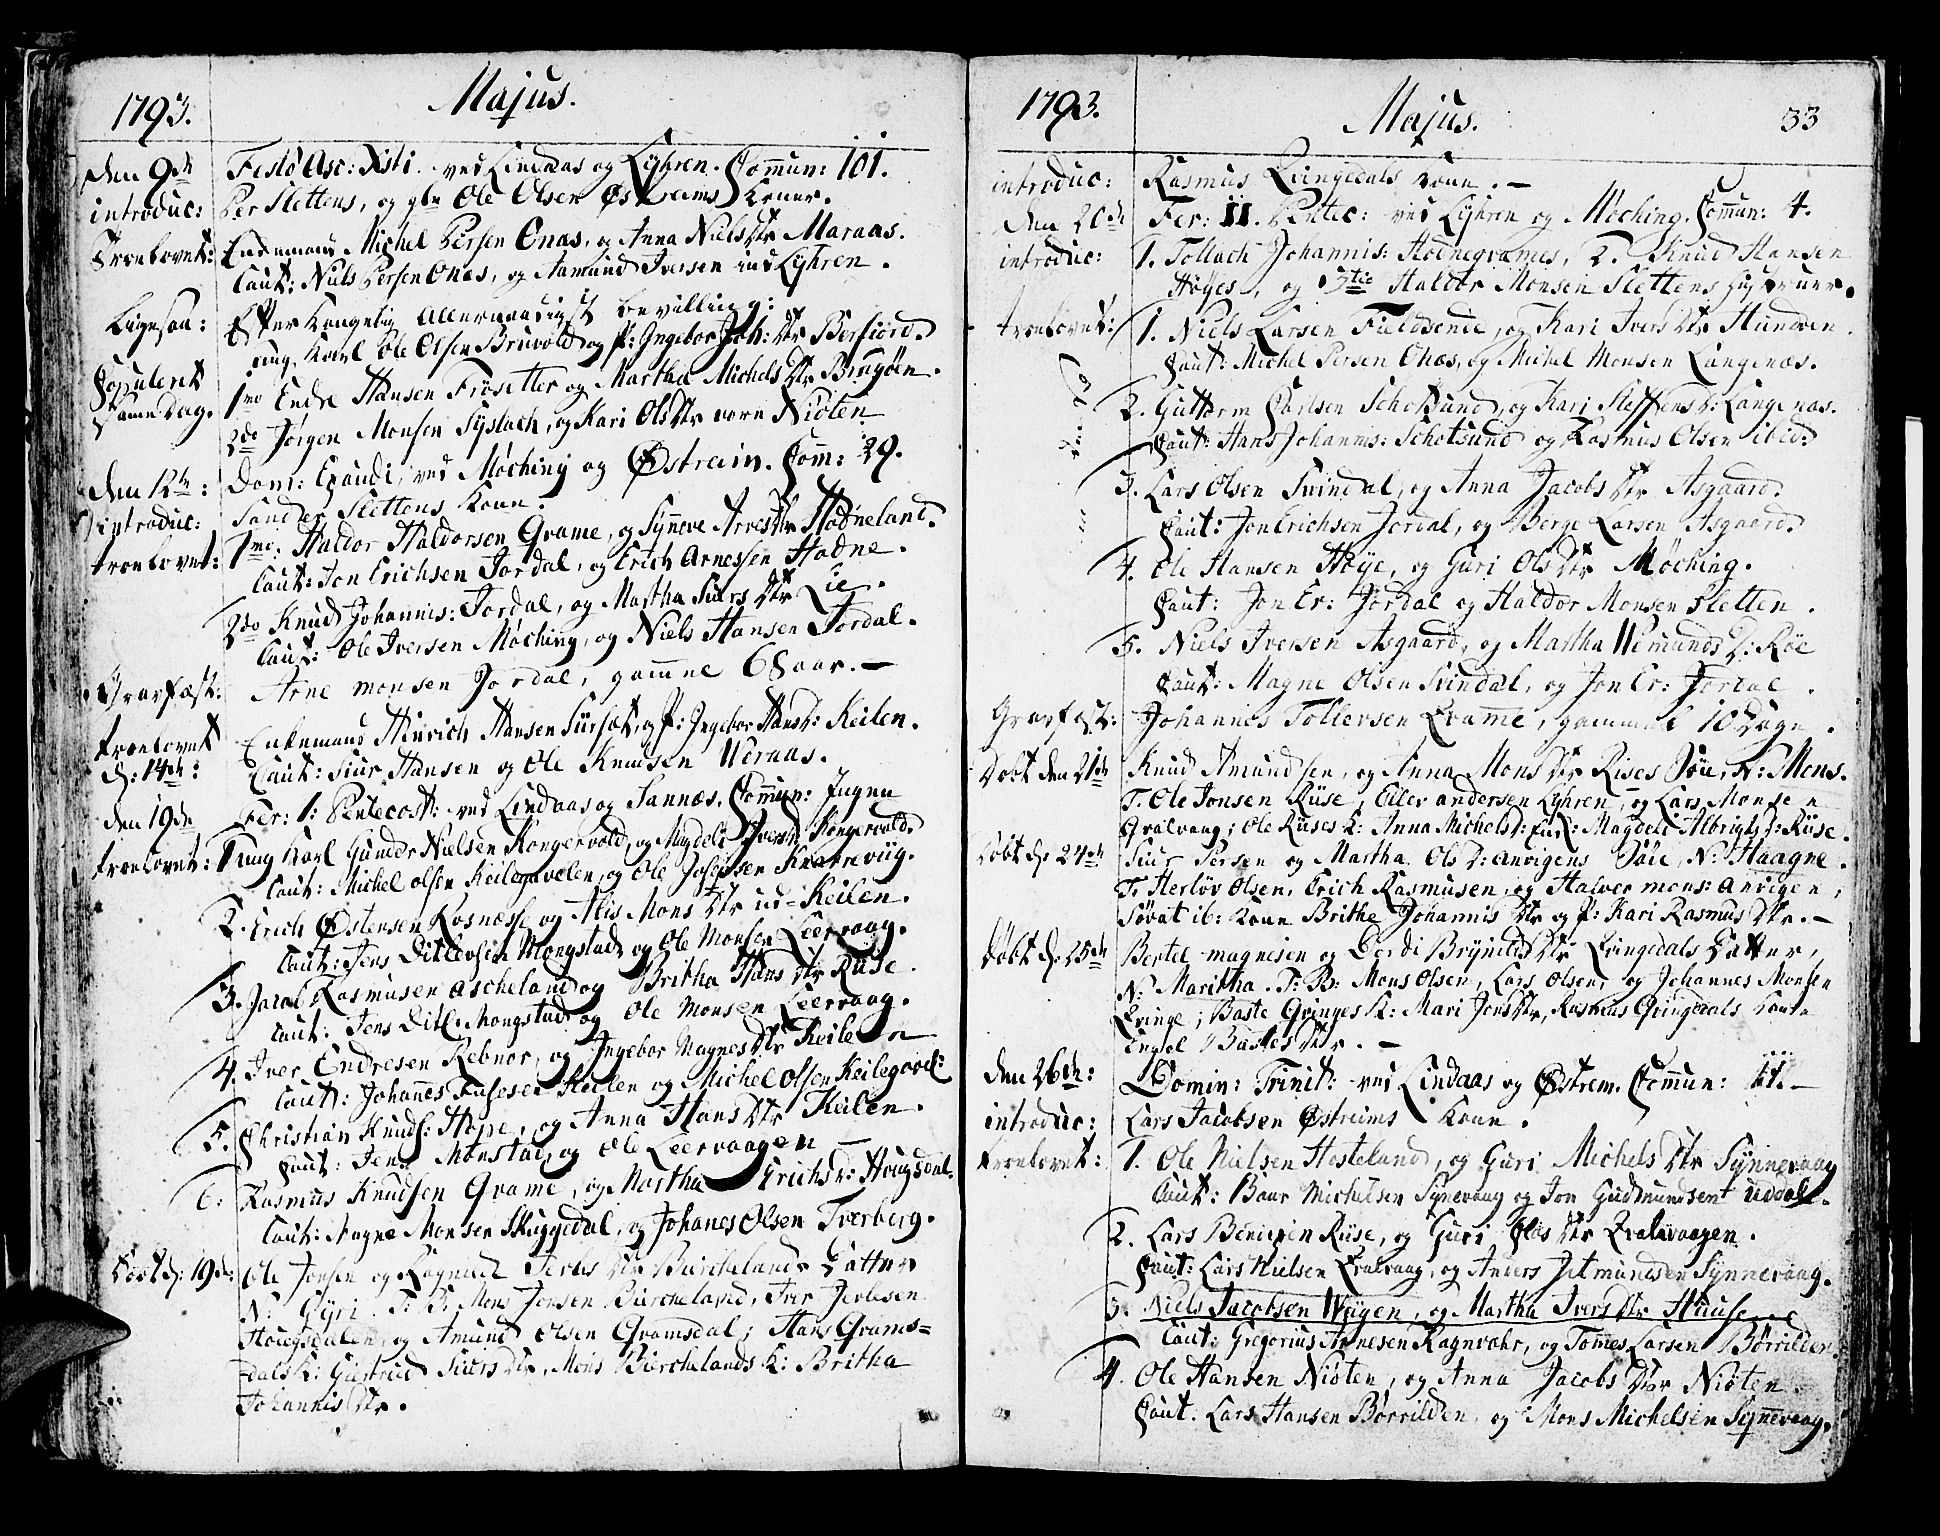 1793. Majus.
den 9de Festo Asc: Xsti ved Lindaas og Lyhren. Commun: 101.
introduc: Per Slettens, og gbr Ole Olsen Østreims Koner.
Troelovet: Enkemand Michel Persen Onæs, og Anna Niels Dtr Maraas.
Caut: Niels Persen Onæs, og Aamund Iversen ind Lyhren.
Ligesaa: Efter Kongelig Allernaadigst bevilling:
ung Karl Ole Olsen Bruvold og P: Ingebor Joh: Dtr Berfiord.
Copulert 1mo Endre Hansen Frøsetter og Martha Michels Dtr Brugøen.
samme Dag. 2do Jørgen Monsen Syslach, og Kari Ols Dtr Niøten
den 12te: Dom: Exaudi, ved Møching og Østreim. Com: 29.
introduc: Sander Slettens Kone.
troelovet: 1mo. Haldor Haldorsen Qvame, og Synneve Arves Dtr Hodneland.
Caut: Jon Erichsen Jordal, og Erich Arnessen Hodne.
2do Knud Johannis: Jordal, og Martha Siurs Dtr Lie.
Caut: Ole Iversen Møching, og Niels Hansen Jordal.
Gravfæst: Arne Monsen Jordal, gamme 68 aar. —
troelovet Enkemand Hinrich Hansen Sürset, og P: Ingebor Hans D: Keilen.
d: 14de: Caut: Siur Hansen og Ole Knudsen Wernaas.
den 19de Fer: 1: Pentecost: ved Lindaas og Sannæs. Commun: Ingen
troelovet: 1 ung Karl Gunder Nielsen Kongervold, og Magdeli Ivers D: Kongervold.
Caut: Michel Olsen Keilegavelen, og Ole Josepsen Knarrevüg.
2. Erich Østensen Kosnæsse og Alis Mons Dtr ud-Keilen.
Caut: Jens Ditlevsen Mongstad, og Ole Monsen Leervaag.
3. Jacob Rasmusen Ascheland og Britha Hans Dtr Rüse.
Caut: Jens Ditl: Mongstad og Ole Monsen Leervaag.
4. Iver Endresen Rebnor, og Ingebor Magnes Dtr Keilen
Caut: Johannes Keilen og Michel Olsen Keilegavel:
5. Christian Knuds: Hope, og Anna Hans Dtr Keilen.
Caut: Jens Monstad, og Ole Leervaagen —
6: Rasmus Knudsen Qvame, og Martha Erichs D: Hougsdal.
Caut: Magne Monsen Skuggedal, og Johanes Olsen Tverberg.
Døbt d: 19de: Ole Jonsen og Ragnild Dtr Bircheland Datter
N: Gyri. T: B: Mons Jonsen Bircheland, Iver
Hougsdalen, og Amund Olsen Qvamsdal; Hans Qvams=
=dals K: Giertrud Siurs Dtr, Mons Birchelands K: Britha
Johannis Dtr.
1793. Majus. 33
introduc: Rasmus Qvingedals Kone. —
den 20de Fer: II. Pentec: ved Lyhren og Møching. Commun: 4.
introduc: 1. Tollach Johannis: Hodneqvames, 2. Knud Hansen
Høyes, og 3tie Haldor Monsen Slettens Hustruer.
troelovet: 1. Niels Larsen Fieldsende, og Kari Ivers Dtr Hundven.
Caut: Michel Persen Onæs, og Michel Monsen Langenæs.
2. Guttorm Carlsen Schotsund, og Kari Steffens D: Langenæs.
Caut: Hans Johannis: Schotsund og Rasmus Olsen ibid:
3. Lars Olsen Svindal, og Anna Jacobs Dtr Asgaard.
Caut: Jon Erichsen Jordal, og Berge Larsen Asgaard.
4. Ole Hansen Høye, og Guri Ols Dtr Møching.
Caut: Jon Er: Jordal og Haldor Monsen Sletten.
5. Niels Iversen Asgaard, og Martha Wemunds D: Røe
Caut: Magne Olsen Svindal, og Jon Er: Jordal.
Gravfæst: Johannes Tollevsen Qvamme, gammel 10 Dage.
Døbt den 21de Knud Amundsen, og Anna Mons Dtr Rises Søn, N: Mons.
T. Ole Jonsen Rüse, Eller Andersen Lyhren, og Lars Monsen
Qvalvaag; Ole Rüses K: Anna Michels D: Magdeli Albrigts D: Rüse.
Døbt d. 24de Siur Persen og Martha Ols D: Anvigens Søn, N: Haagne.
T: Herløv Olsen, Erich Rasmusen, og Halver Mons: Anvigen,
Siovat ib: Kone Brithe Johannis Dtr og P: Kari Rasmus Dtr. —
Døbt d: 25de Bertel Magnesen og Dordi Brynilds Dtr Qvingedals Datter,
N: Maritha. T: B: Mons Olsen, Lars Olsen, og Johannes Monsen
Qvinge; Baste Qvinges K: Mari Jons Dtr, Rasmus Qvingedals Kone
Engel Bastes Dtr. —
den 26de: Domin: Trinit: ved Lindaas og Østrem. Commun: 11. —
introduc: Lars Jacobsen Østreims Kone.
troelovet: 1. Ole Nielsen Hosteland, og Guri Michels Dtr Synnevaag
Caut: Baar Michelsen Synevaag og Jon Gudmundsen Uddal.
2. Lars Rüse, og Guri Olas Dtr Qvalevaagen.
Caut: Lars Nielsen Qvalvaag, og Anders Jetmundsen Synnevaag.
3. Niels Jacobsen Wügen, og Martha Ivers Dtr
Caut: Gregorius Arnesen Ragnvahr, og Tomes Larsen Børrilden.
4. Ole Hansen Niøten, og Anna Jacobs Dtr Niøten.
Caut. Lars Hansen Børrilden, og Mons Michelsen Synnevaag.